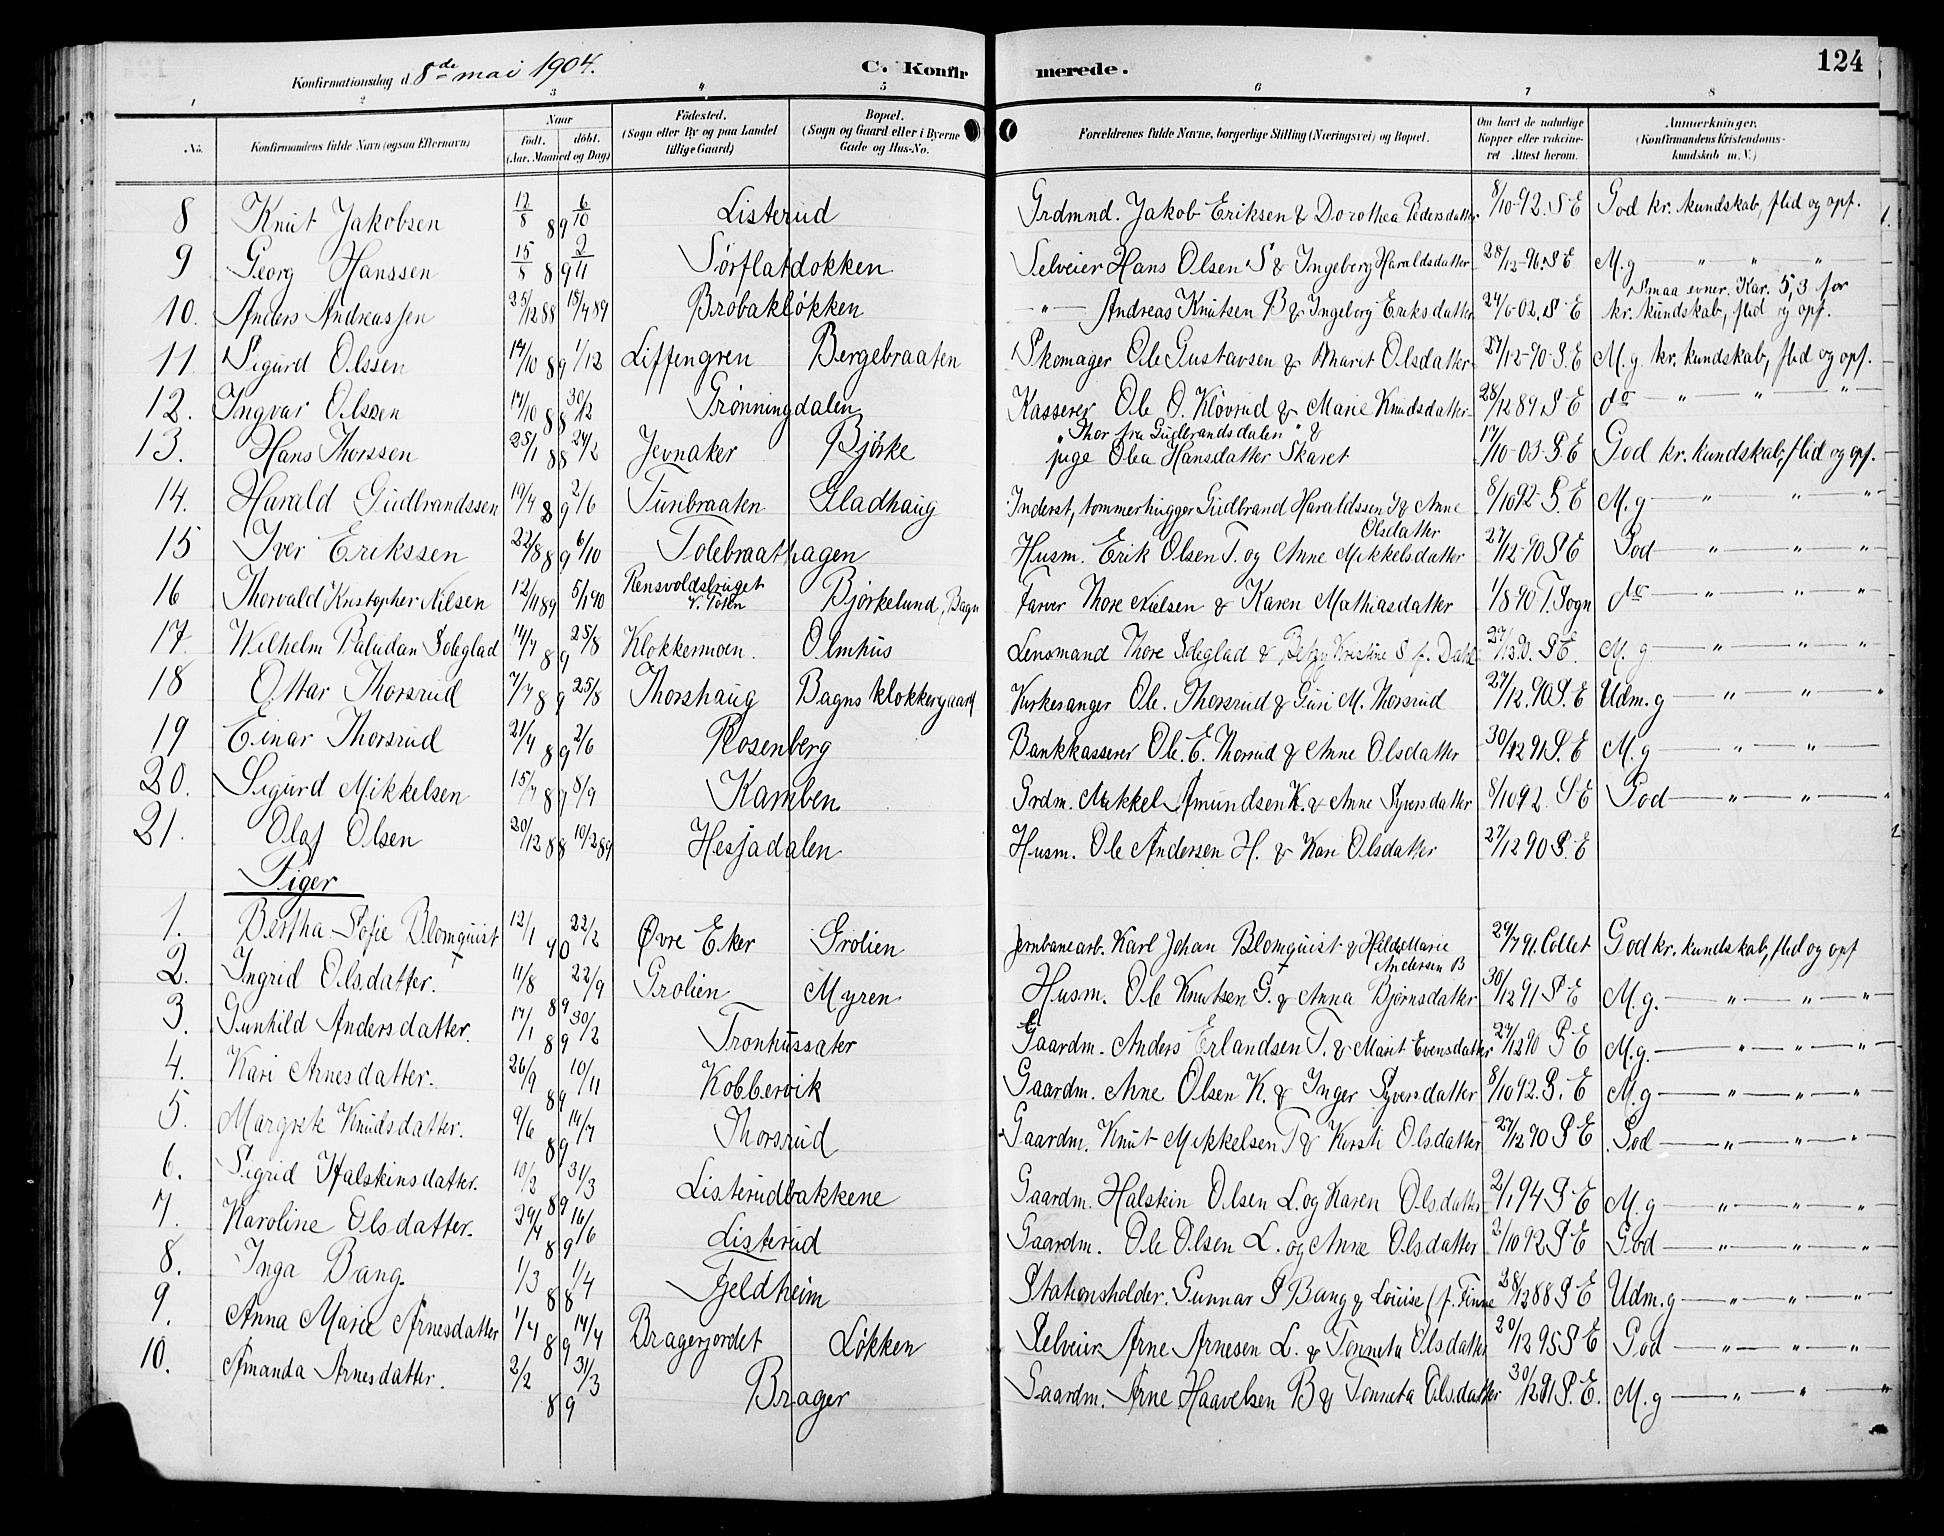 Konfirmationsdag d. 8de mai 1904.
C. Konfirmerede.
124
1 2 3 4 5 6 7 8
No.
Konfirmandens fulde Navn (ogsaa Efternavn)
Naar
födt. döbt.
(Aar, Maaned og Dag)
Födested.
(Sogn eller By og paa Landet
tillige Gaard)
Bopæl.
(Sogn og Gaard eller i Byerne
Gade og Hus-No.
Forældrenes fulde Navne, borgerlige Stilling (Næringsvei) og Bopæl.
Om havt de naturlige
Kopper eller vaccineret
Attest herom.
Anmerkninger.
(Konfirmandens Kristendomskundskab
m. V.)
8 Knut Jakobsen 12/8 89 6/10 Listerud Grdmnd. Jakob Eriksen & Dorothea Pedersdatter 8/10-92. S E God kr. kundskab, flid og opf.
9 Georg Hanssen 15/8 89 2/11 Sørflatdokken Selveier Hans Olsen S & Ingeberg Haraldsdatter 28/12-96. S E M.g — " — " — "
10. Anders Andreassen 25/12 88 18/4 89 Brøbakløkken " — Andreas Knutsen B & Ingeborg Eriksdatter 24/6-02. S E Smaa evner. Kar. 5,3 for
kr. kundskab, flid og opf.
11 Sigurd Olssen 14/10 89 1/12 Liffengren Bergebraaten Skomager Ole Gustavsen & Maret Olsdatter 27/12-90. S. E M.g. kr. kundskab, flid og opf.
12. Ingvar Olssen 14/10 88 30/12 Grønningdalen Kasserer Ole O. Kløvrud & Marie Knudsdatter 28/12 89 S E do — " — " — "
13. Hans Thorssen 25/1 88 24/2 Jevnaker Bjørke "Thor fra Gudbrandsdalen" &
pige Olea Hansdatter Skaret 17/10-03. S E God kr. kundskab, flid og opf.
14. Harald Gudbrandssen 19/4 89 2/6 Tunbraaten Gladhaug Inderst, tommerhugger Gudbrand Haraldssen T & Anne
Olsdatter 8/10 92 S. E M.g — " — " — "
15 Iver Erikssen 22/8 89 6/10 Tolebraathagen Husm. Erik Olsen T. og Anne Mikkelsdatter 27/12-90 S E God — " — " — "
16 Thorvald Kristopher Nilsen 12/11 89 5/1 90 Rensvoldsbruget
V. Toten Bjørkelund, Bagn Farver Thore Nielsen & Karen Mathiasdatter 1/8 90 T. Sogn do — " — " — "
17. Wilhelm Paludan Soleglad 14/7 89 25/8 Klokkermoen. Olmhus Lensmand Thore Soleglad & Betzy Kristine S f. Dahl S E. M. g — " — " — "
18 Ottar Thorsrud 7/7 89 25/8 Thorshaug Bagns klokkergaard Kirkesanger Ole. Thorsrud & Guri M. Thorsrud 27/12.90 S. E Udm. g — " — " — "
19 Einar Thorsrud 21/4 89 2/6 Rosenberg Bankkasserer Ole. E. Thorsrud & Anne Olsdatter 30/12 91 S. E M.g — " — " — "
20. Sigurd Mikkelsen 15/7 89 8/9 Kamben Grdm. Mikkel Amundsen K. & Anne Syversdatter 8/10 92. S E God — " — " — "
21. Olaf Olsen 20/12 88 10/2 89 Hesjadalen Husm. Ole Andersen H. & Kari Olsdatter 27/12 90 S. E
Piger
1. Bertha Sofie Blomquist 12/1 90 22/2 Øvre Eker Grolien Jernbanearb. Karl Johan Blomquist & Hilda Marie
Andersen B 29/7 91. Collet God kr. kundskab, flid og opf
2. Ingrid Olsdatter. 11/8 89 22/9 Grolien Myren Husm. Ole Knutsen G. & Anna Bjørnsdatter 30/12 91 S E M.g. — " — " — "
3. Gunhild Andersdatter. 17/1 89 30/2 Tronhussater Gaardm. Anders Erlandsen T. & Marit Evensdatter 27/12 90 S E M.g. — " — " — "
4. Kari Arnesdatter. 26/9 89 10/11 Kobbervik Gaardm. Arne Olsen K. & Inger Syversdatter 8/10 92. S. E M.g — " — " — "
5. Margrete Knudsdatter. 9/6 89 14/7 Thorsrud Gaardm. Knut Mikkelsen T & Kirsti Olsdatter 27/12 90 S E God — " — " — "
6. Sigrid Halstinsdatter. 10/2 89 31/3 Listerudbakkene Gaardm. Halstein Olsen L. og Karen Olsdatter 2/1 94 S E M.g — " — " — "
7. Karoline Olsdatter. 29/4 89 16/6 Listerud Gaardm. Ole Olsen L. og Anne Olsdatter 2/10 92 S E God — " — " — "
8. Inga Bang. 1/3 88 1/4 Fjeldheim Stationsholder. Gunnar S Bang & Louise (f. Finne 28/12 88 S E Udm.g — " — " — "
9. Anna Marie Arnesdatter 1/4 89 14/4 Bragerjordet Løkken Selveier Arne Arnesen L. & Tonneta Olsdatter 20/12 95 S E God — " — " — "
10. Amanda Arnesdatter. 2/2 89 31/3 Brager Gaardm. Arne Haavelsen B & Tonneta Olsdatter 30/12 91 S. E. M.g — " — " — "